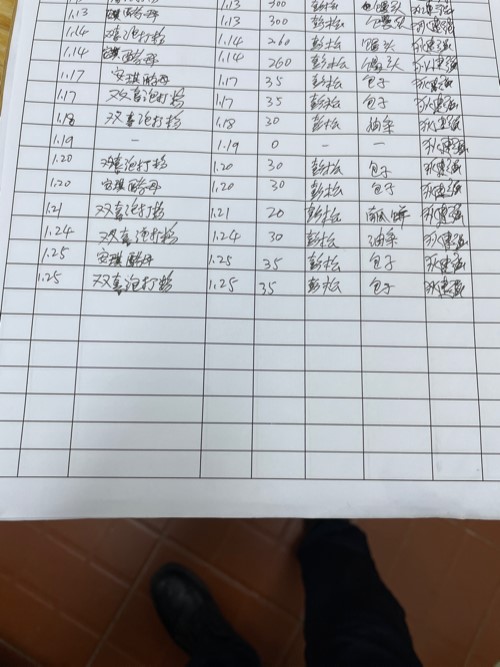 1.13 安琪酵母 1.13 300 彭松
1.14 双喜泡打粉 1.14 260 彭松 馒头 狄建强
1.14 安琪酵母 1.14 260 彭松 馒头 狄建强
1.17 安琪酵母 1.17 35 彭松 包子 狄建强
1.17 双喜泡打粉 1.17 35 彭松 包子 狄建强
1.18 双喜泡打粉 1.18 30 彭松 油条 狄建强
1.19 — 1.19 0 — — 狄建强
1.20 双喜泡打粉 1.20 30 彭松 包子 狄建强
1.20 安琪酵母 1.20 30 彭松 包子 狄建强
1.21 双喜泡打粉 1.21 20 彭松 南瓜饼 狄建强
1.24 双喜泡打粉 1.24 30 彭松 油条 狄建强
1.25 安琪酵母 1.25 35 彭松 包子 狄建强
1.25 双喜泡打粉 1.25 35 彭松 包子 狄建强